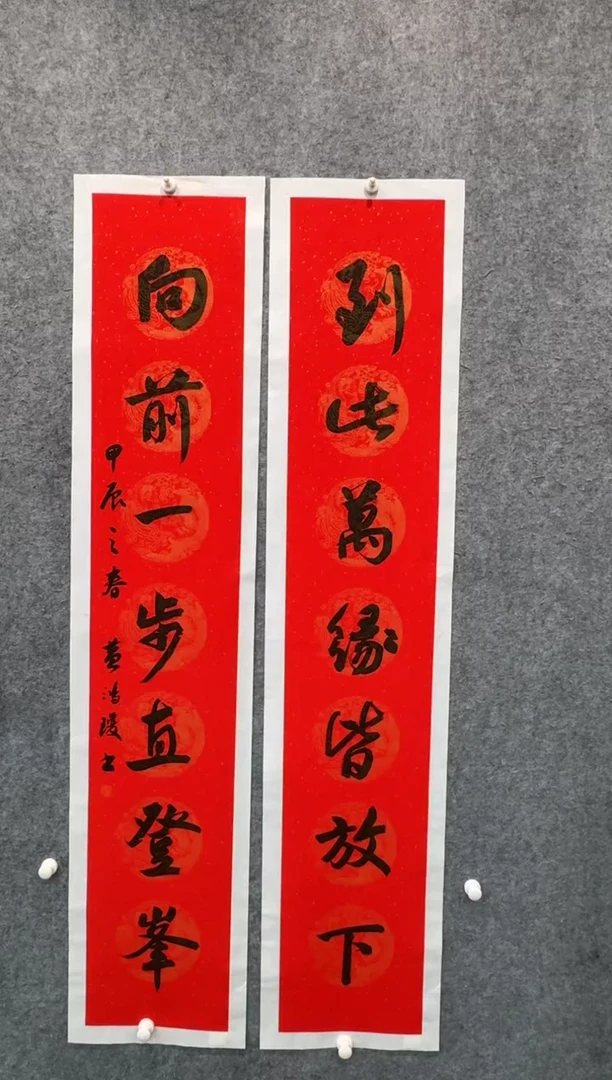 到此萬緣皆放下
向前一步直登峯
甲辰之春 黄鴻